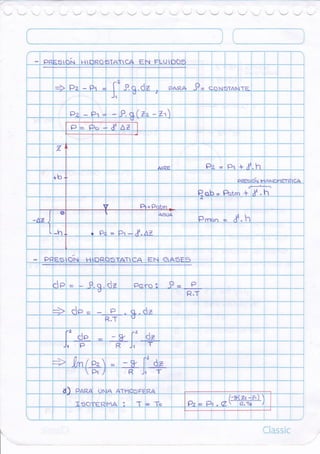 - PRESIÓN HIDROSTATICA EN FLUIDOS
⇒ P2 - P1 = ∫₁² ρ.g.dz , PARA ρ= CONSTANTE
P2 - P1 = - ρ.g(Z2 - Z1)
P = Po - γ ΔZ
Z
AIRE
P2 = P1 + γ.h
+b
PRESIÓN MANOMETRICA
Pab = Patm + γ.h
0
P1=Patm
AGUA
-ΔZ
Pman = γ.h
-h
P2 = P1 - γ.ΔZ
- PRESIÓN HIDROSTATICA EN GASES
dP = - ρ.g.dz Pero: ρ = P/R.T
⇒ dP = - P/R.T . g.dz
∫₁² dP/P = - g/R ∫₁² dz/T
⇒ ln(P2/P1) = - g/R ∫₁² dz/T
a) PARA UNA ATMOSFERA
ISOTERMA : T = To
Classic